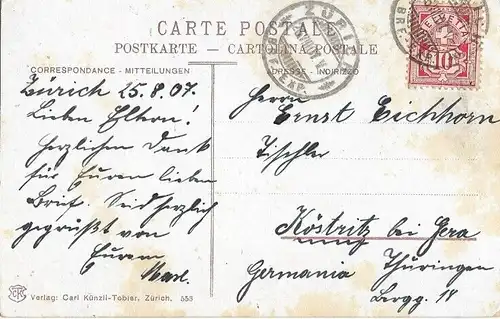 CARTE POSTALE
POSTKARTE – CARTOLINA POSTALE
CORRESPONDANCE - MITTEILUNGEN
ADRESSE - INDIRIZZO
ZÜRICH
HELVETIA
10
Zürich 25.8.07.
Lieben Eltern!
Herzlichen Dank
für Euren lieben
Brief. Seid herzlich
gegrüßt von
Eurem
Herrn
Ernst Eichhorn
Tischler
Köstritz bei Gera
Germania Thüringen
18
Verlag: Carl Künzli-Tobler, Zürich. 553